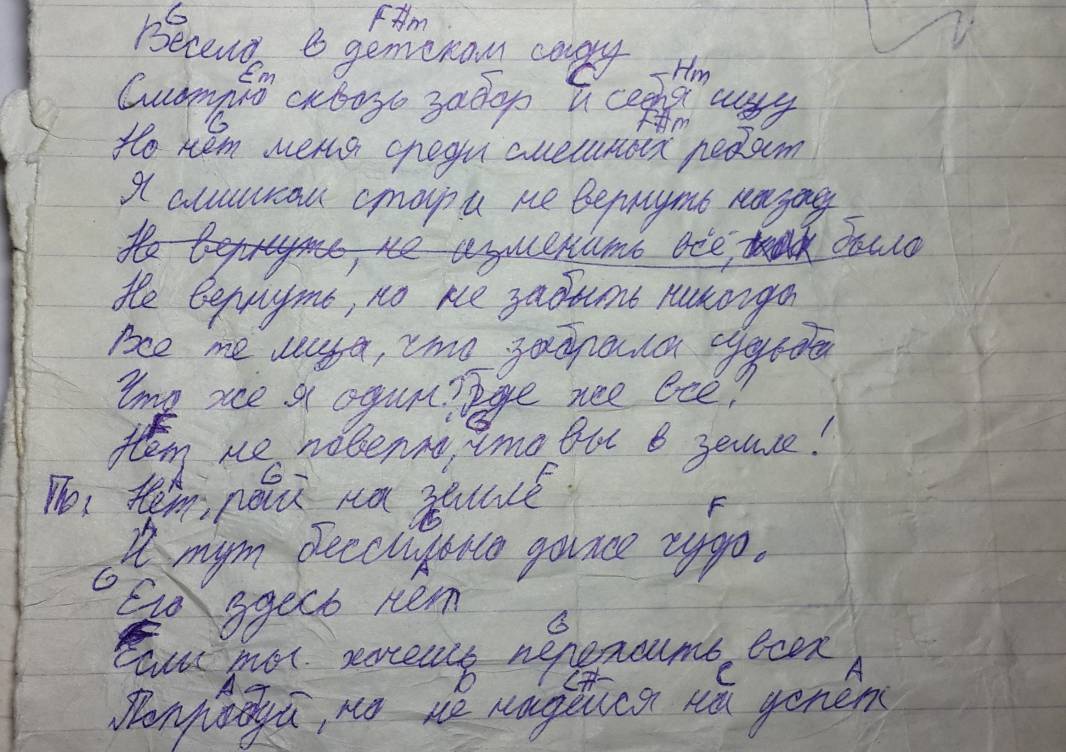 G F#m
Весело в детском саду
Em C Hm
Смотрю сквозь забор и себя ищу
G F#m
Но нет меня среди смешных ребят
Я слишком стар и не вернуть назад
Не вернуть, не изменить всё, было
Не вернуть, но не забыть никогда
Все те лица, что забрала судьба
Что же я один? Где же все?
F G
Нет не поверю, что вы в земле!
A G F
Пр: Нет, рай на земле
A G F
И тут бессильно даже чудо.
G A
Его здесь нет
G
Если ты хочешь пережить всех
A D C# C A
Попробуй, но не надейся на успех